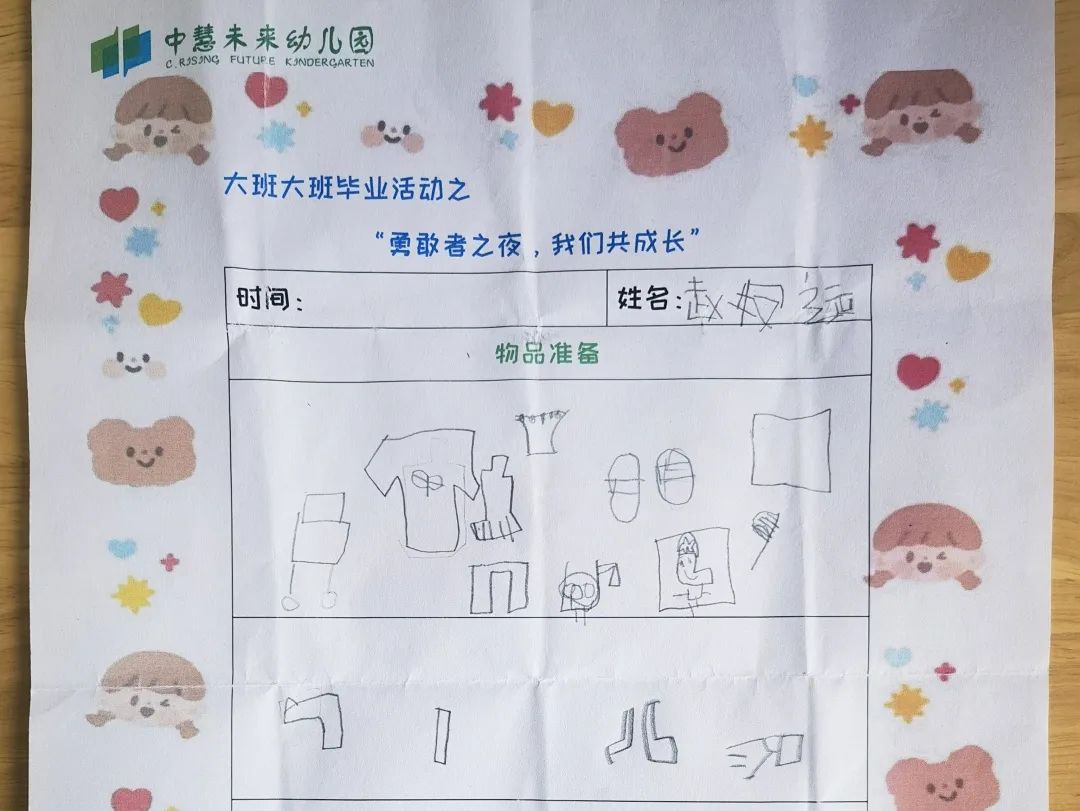 中慧未来幼儿园
C.RISING FUTURE KINDERGARTEN
大班大班毕业活动之
“勇敢者之夜，我们共成长”
时间： 姓名：赵
物品准备